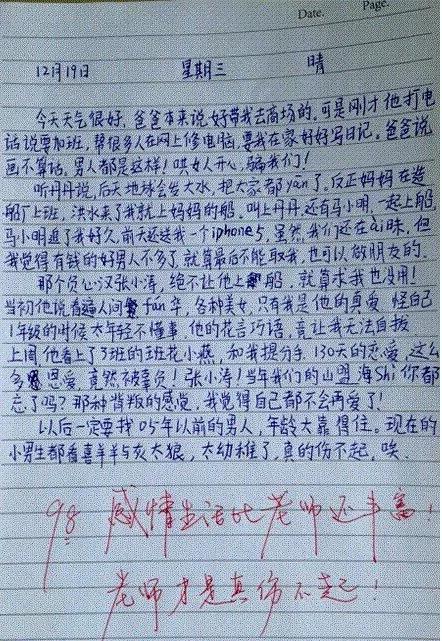 Date. Page.
12月19日 星期三 晴
今天天气很好，爸爸本来说好带我去商场的，可是刚才他打电
话说要加班，帮很多人在网上修电脑，要我在家好好写日记。爸爸说
画不算话，男人都是这样！哄女人开心，骗我们！
听丹丹说，后天地球会发大水，把大家都yān了。反正妈妈在造
船厂上班，洪水来了我就上妈妈的船。叫上丹丹，还有马小明，一起上船，
马小明追了我好久，前天还送我一个iphone5，虽然我们还在ài昧，但
我觉得有钱的好男人不多了，就算最后不能取我，也可以做朋友的。
那个负心汉张小涛，绝不让他上船，就算求我也没用！
当初他说看遍人间fán华，各种美女，只有我是他的真爱 怪自己
1年级的时候太年轻不懂事，他的花言巧语，竟让我无法自拔
上周他看上了3班的班花小燕，和我提分手，130天的恋爱，这么
多恩爱，竟然被辜负！张小涛！当年我们的山盟海Shi你都
忘了吗？那种背叛的感觉，我觉得自己都不会再爱了！
以后一定要找05年以前的男人，年龄大靠得住。现在的
小男生都看喜羊羊与灰太狼，太幼稚了，真的伤不起，唉、
98 感情生活比老师还丰富！
老师才是真伤不起！